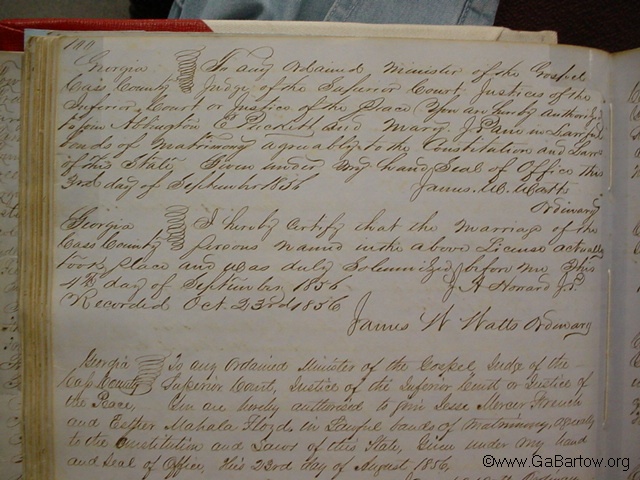 190
Georgia To any ordained Minister of the Gospel
Cass County Judge of the Superior Court, Justices of the
Inferior Court or Justice of the Peace You are hereby authorized
to join Abbington and Mary J. in Lawful
bonds of Matrimony agreeably to the Constitution and Laws
of this State Given under my hand Seal of Office this
3rd day of September 1856 James. W. Watts
Ordinary
Georgia I hereby Certify that the Marriage of the
Cass County persons named in the above License actually
took place and was duly Solemnized before me This
4th day of September 1856 J A Howard J.P.
Recorded Oct. 23rd 1856
James W Watts Ordinary
Georgia To any Ordained Minister of the Gospel, Judge of the
Cass County Superior Court, Justice of the Inferior Court or Justice of
the Peace, You are hereby authorised to join Jesse Mercer French
and Esther Mahala Floyd in Lawful bands of Matrimony, agreeably
to the Constitution and Laws of this State, Given under my hand
and Seal of Office, this 23rd day of August 1856,
©www.GaBartow.org